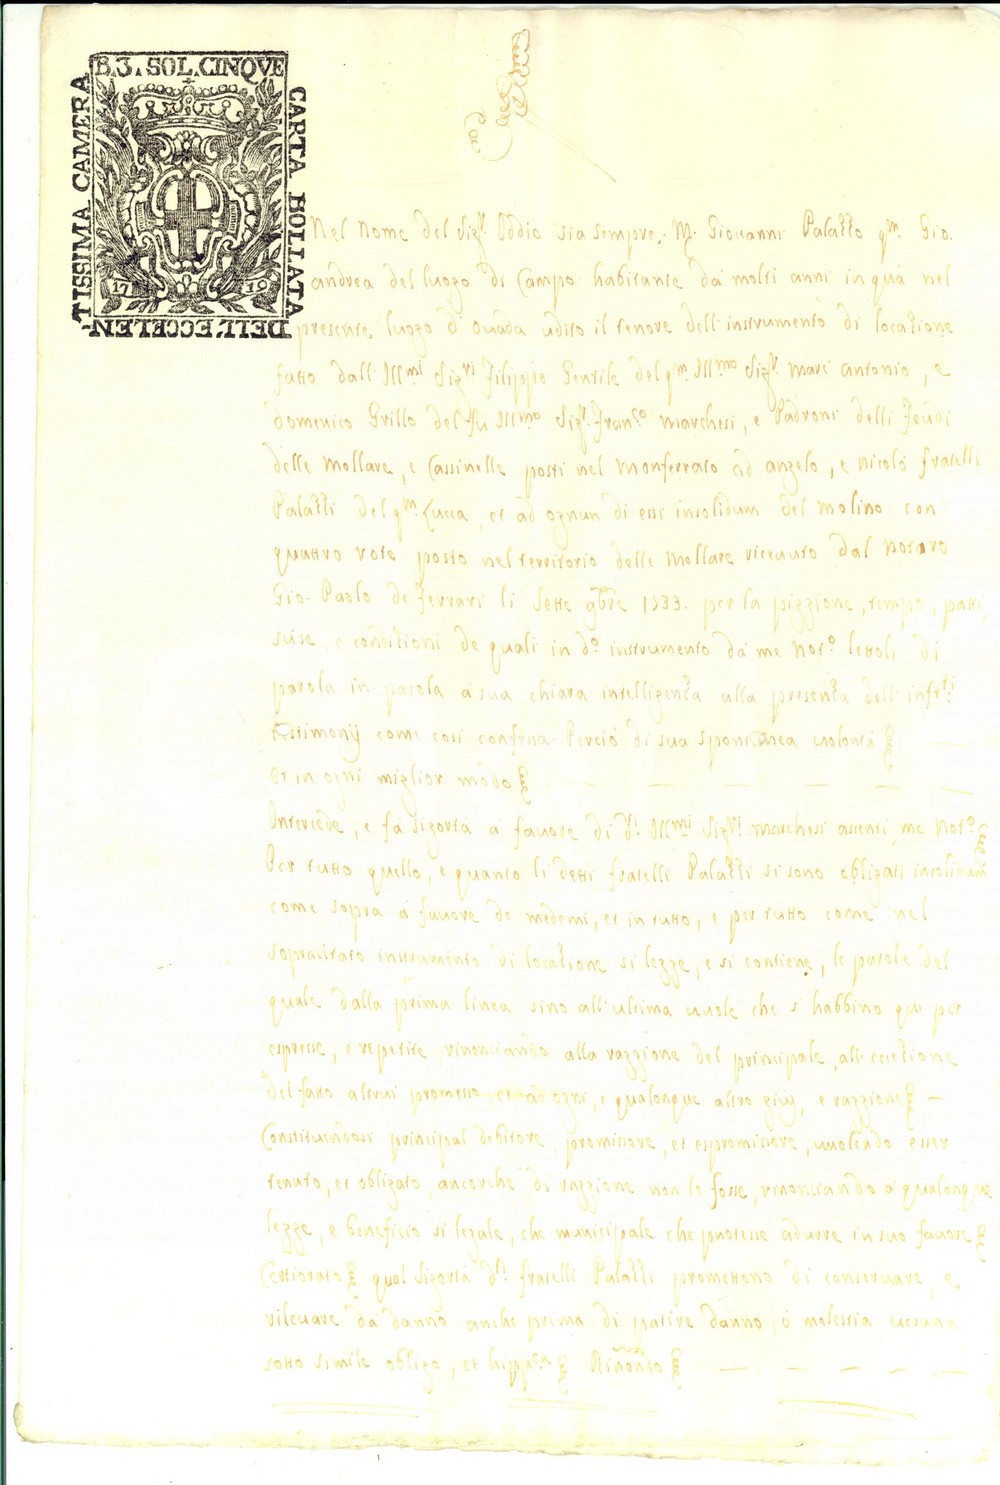 B. 3. SOL. CINQVE
CARTA BOLLATA
DELL'ECCELEN-
TISSIMA CAMERA
17 19
Nel Nome del Sigr. Iddio sia sempre. M. Giouanni Palazzo qm. Gio.
andrea del luogo di Campo habitante da molti anni in quà nel
presente luogo d'Ouada udito il tenore dell'instrumento di locatione
fatto dall'Illmi Sigri Filippo Gentile del qm Illmo Sigr. Marc'antonio, e
domenico Grillo del fu Illmo Sigr. Franco Marchesi, e Padroni delli Feudi
delle Mollare, e Cassinelle posti nel Monferrato ad angelo, e nicolò fratelli
Palazzi del qm. Lucca, et ad ognun di essi insolidum del Molino con
quattro rote posto nel territorio delle Mollare riceuuto dal Notaro
Gio. Paolo de Ferrari li sette 9bre 1733. per la piggione, tempo, patti,
e conditioni de quali in do. instrumento da me Noto. lettoli di
parola in parola à sua chiara intelligenza alla presenza dell'infrti
testimonij come così confessa Perciò di sua spontanea uolontà
et in ogni miglior modo
Intercede, e fà sigortà à fauore di di. Illmi Sigri. Marchesi assenti, me Noto.
Per tutto quello, e quanto li detti fratelli Palazzi si sono obligati insolidum
come sopra à fauore de medemi, et in tutto, e per tutto come nel
sopracitato instrumento di locatione si legge, e si contiene, le parole del
quale dalla prima linea sino all'ultima uuole che si habbino qui per
espresse, e repetite, rinonciando alla raggione del principale, all'eccetione
del fatto altrui promesso, et ad ogni, e qualonque altro giij, e raggione
Constituendosi principal debitore, promissore, et espromissore, uolendo esser
tenuto, et obligato, ancorche di raggione non lo fosse, rinonciando à qualonque
legge, e beneficio si legale, che municipale che puotesse adurre in suo fauore
Certiorato qual sigortà di. fratelli Palazzi promettono di conseruare, e
rileuare da danno anche prima di patire danno, ò molestia ueruna
sotto simile obligo, et